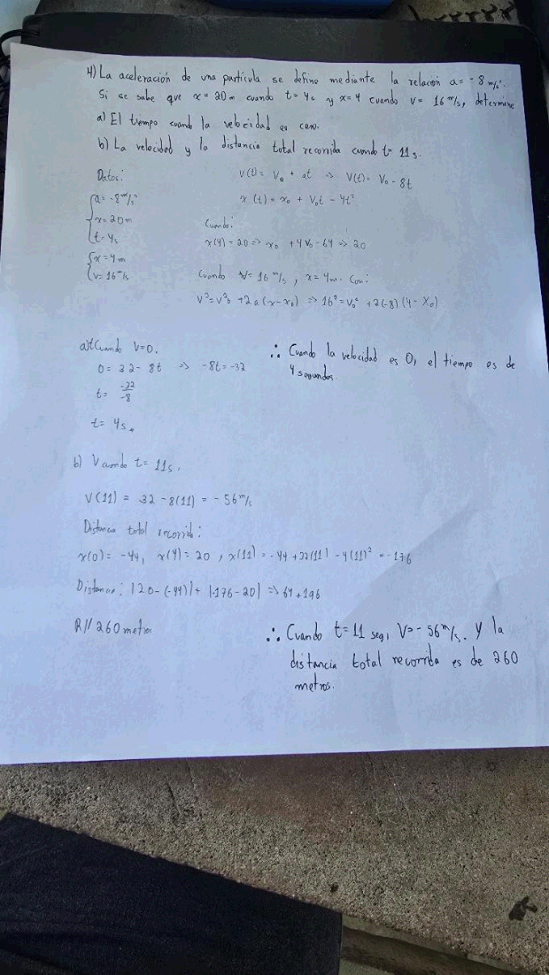 4) La aceleración de una partícula se define mediante la relación a = -8 m/s².
Si se sabe que x = 20m cuando t = 4s y x = 4 cuando v = 16 m/s, determine
a) El tiempo cuando la velocidad es cero.
b) La velocidad y la distancia total recorrida cuando t = 11s.
Datos:
a = -8 m/s²
x = 20m
t = 4s
x = 4m
v = 16 m/s
v(t) = v₀ + at => v(t) = v₀ - 8t
x(t) = x₀ + v₀t - 4t²
Cuando:
x(4) = 20 => x₀ + 4v₀ - 64 => 20
Cuando v = 16 m/s, x = 4m. Con:
v² = v²₀ + 2a(x - x₀) => 16² = v₀² + 2(-8)(4 - x₀)
a) t Cuando v = 0.
0 = 32 - 8t => -8t = -32
t = -32/-8
t = 4s
∴ Cuando la velocidad es 0, el tiempo es de
4 segundos.
b) V cuando t = 11s.
V(11) = 32 - 8(11) = -56 m/s
Distancia total recorrida:
x(0) = -44, x(4) = 20, x(11) = -44 + 32(11) - 4(11)² = -176
Distancia: |20 - (-44)| + |-176 - 20| => 64 + 196
R// 260 metros
∴ Cuando t = 11 seg, V = -56 m/s. Y la
distancia total recorrida es de 260
metros.